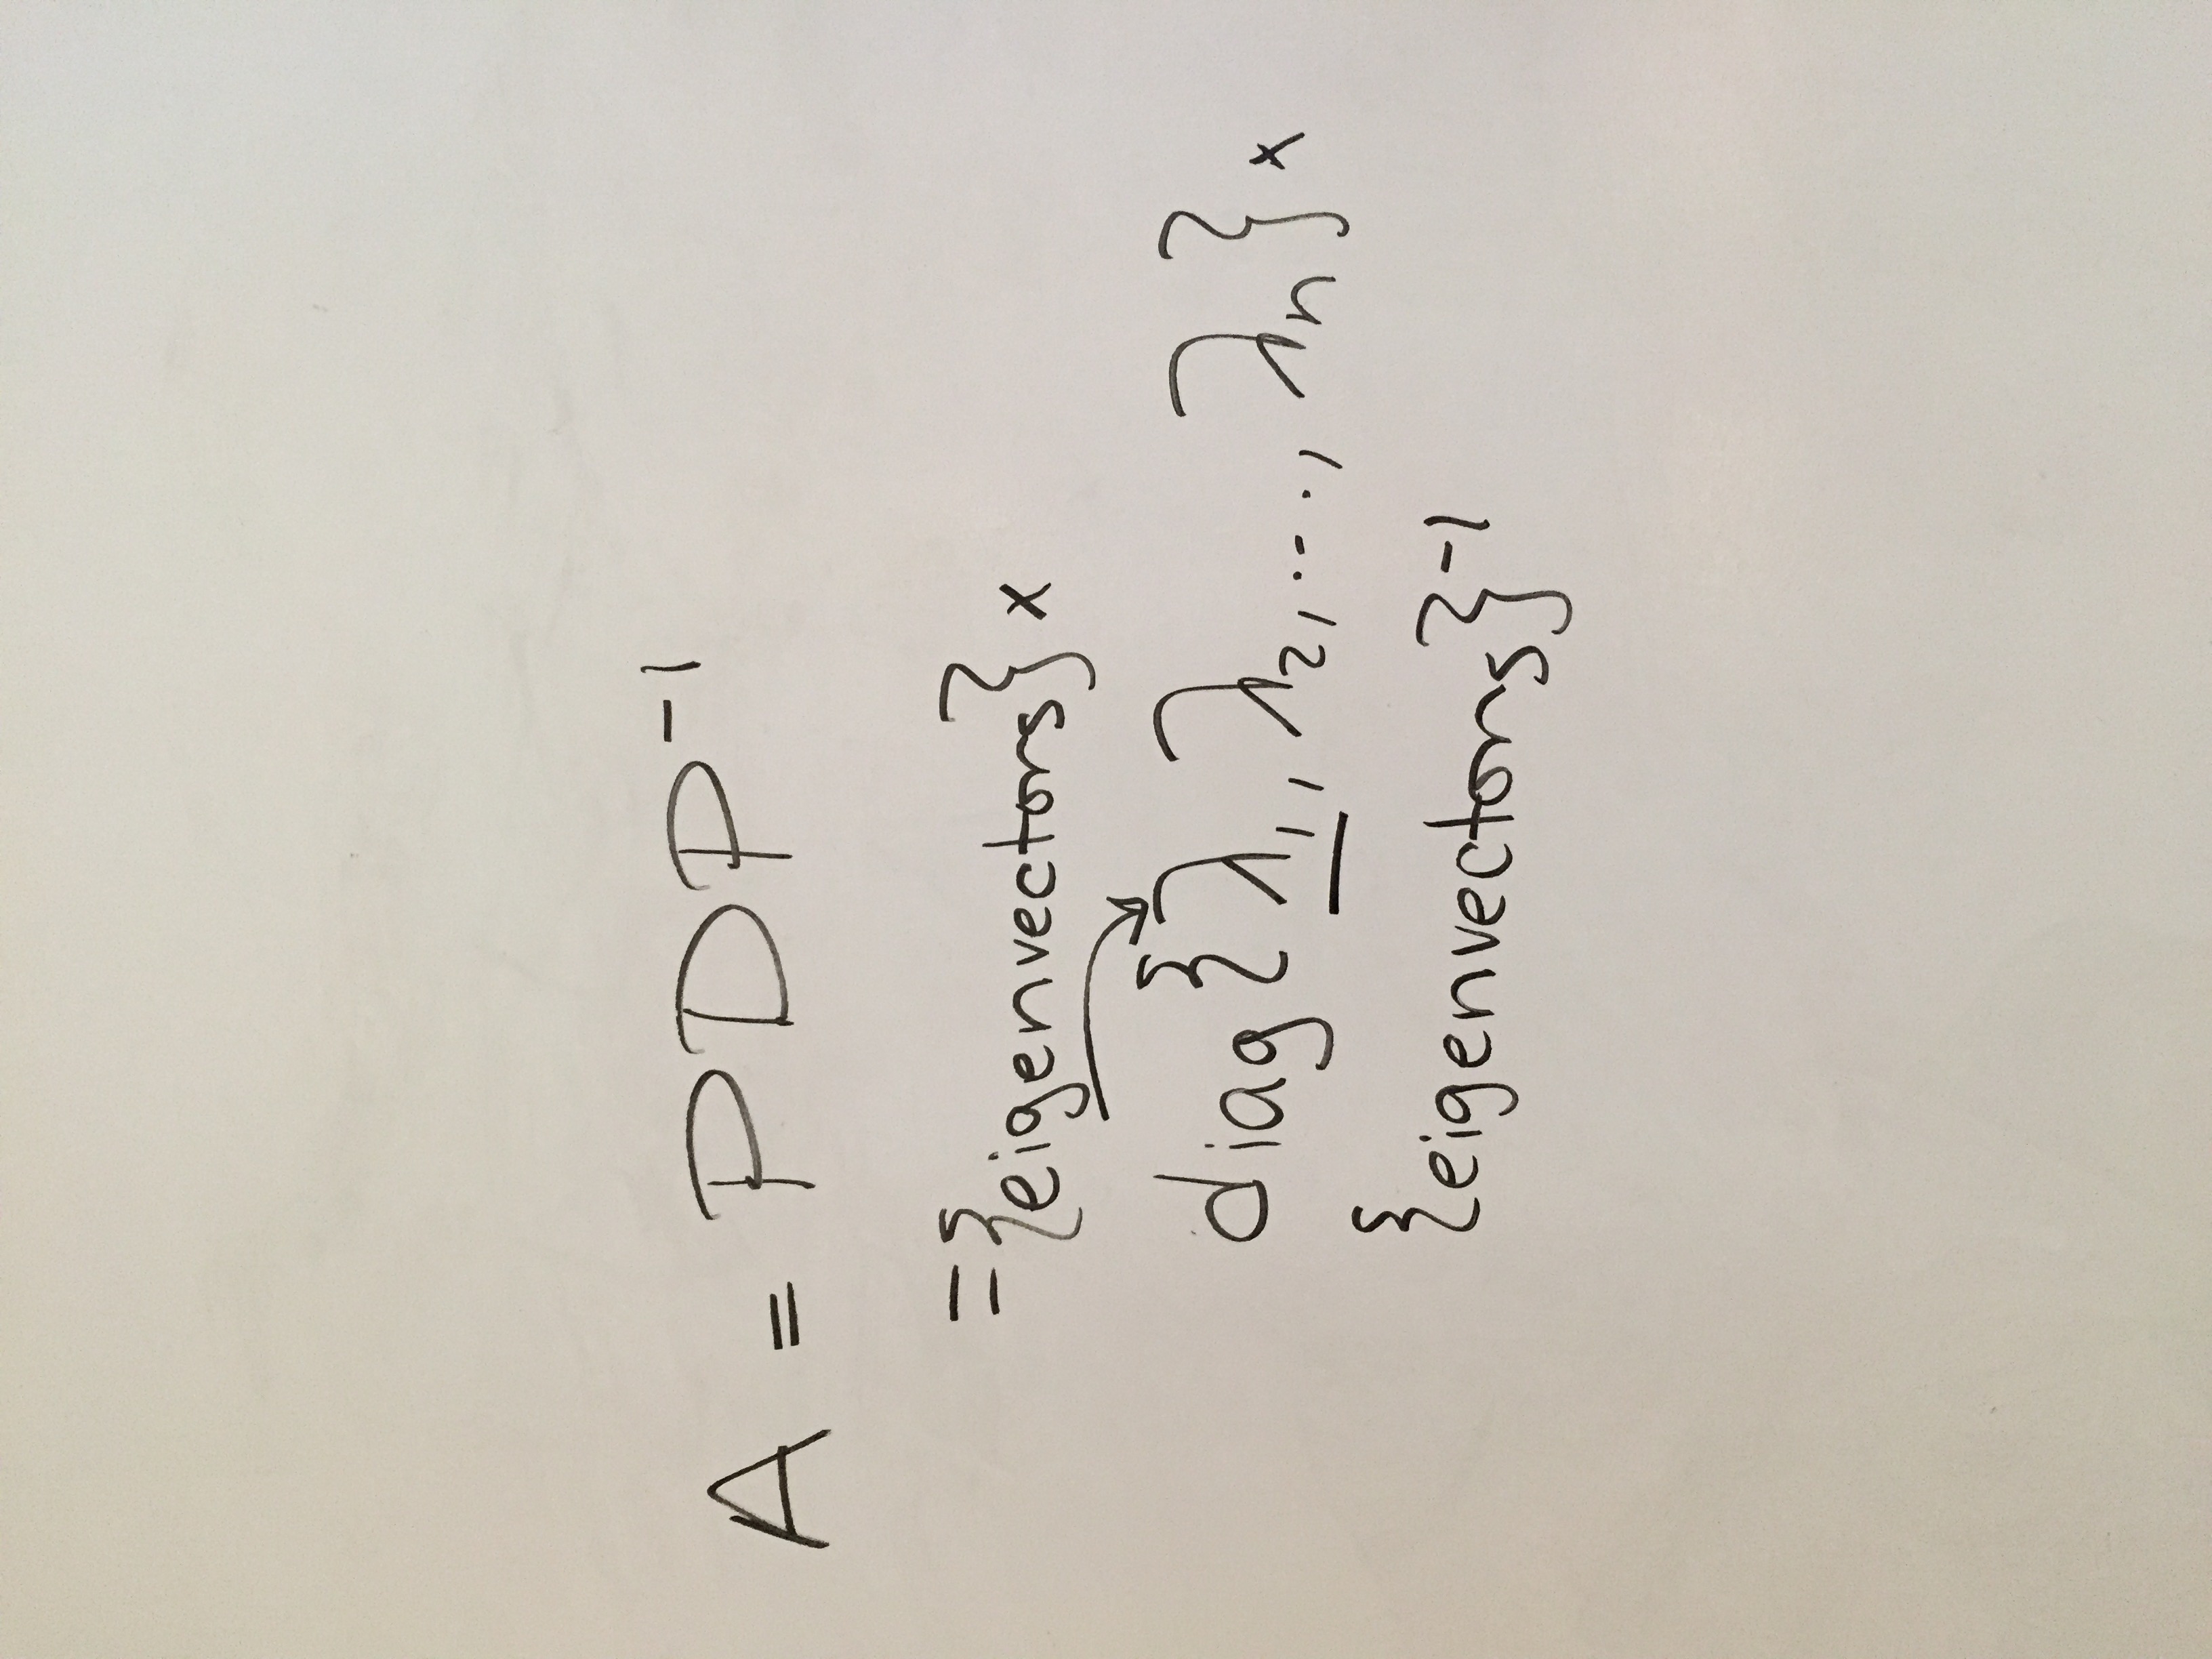 A = PDP⁻¹
= {eigenvectors} x
diag {λ₁, λ₂, ..., λn} x
{eigenvectors}⁻¹